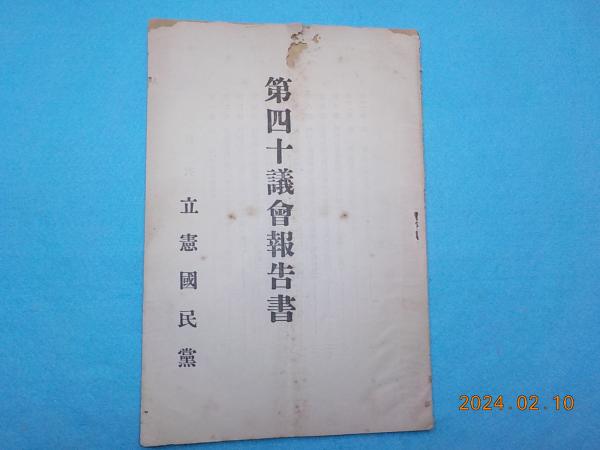 第四十議會報告書
立憲國民黨
2024.02.10